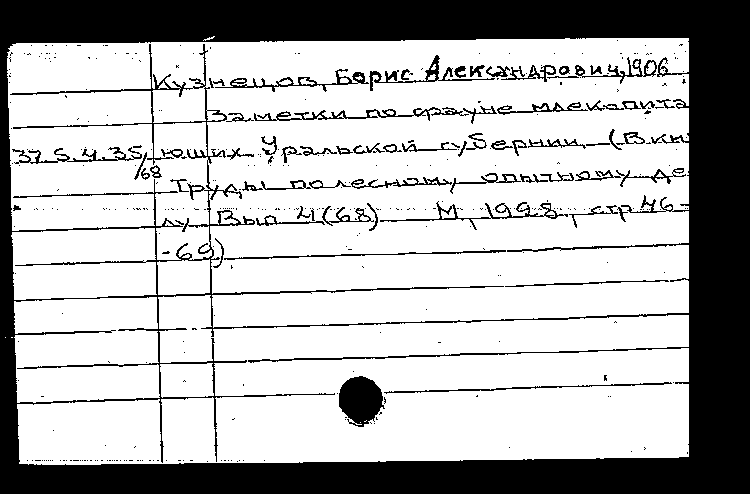 Кузнецов, Борис Александрович, 1906
Заметки по фауне млекопита
37.5.4.35/68 ющих Уральской губернии. (В кн:
Труды по лесному опытному де-
лу. Вып 4(68) М, 1928, стр 46-
-69)